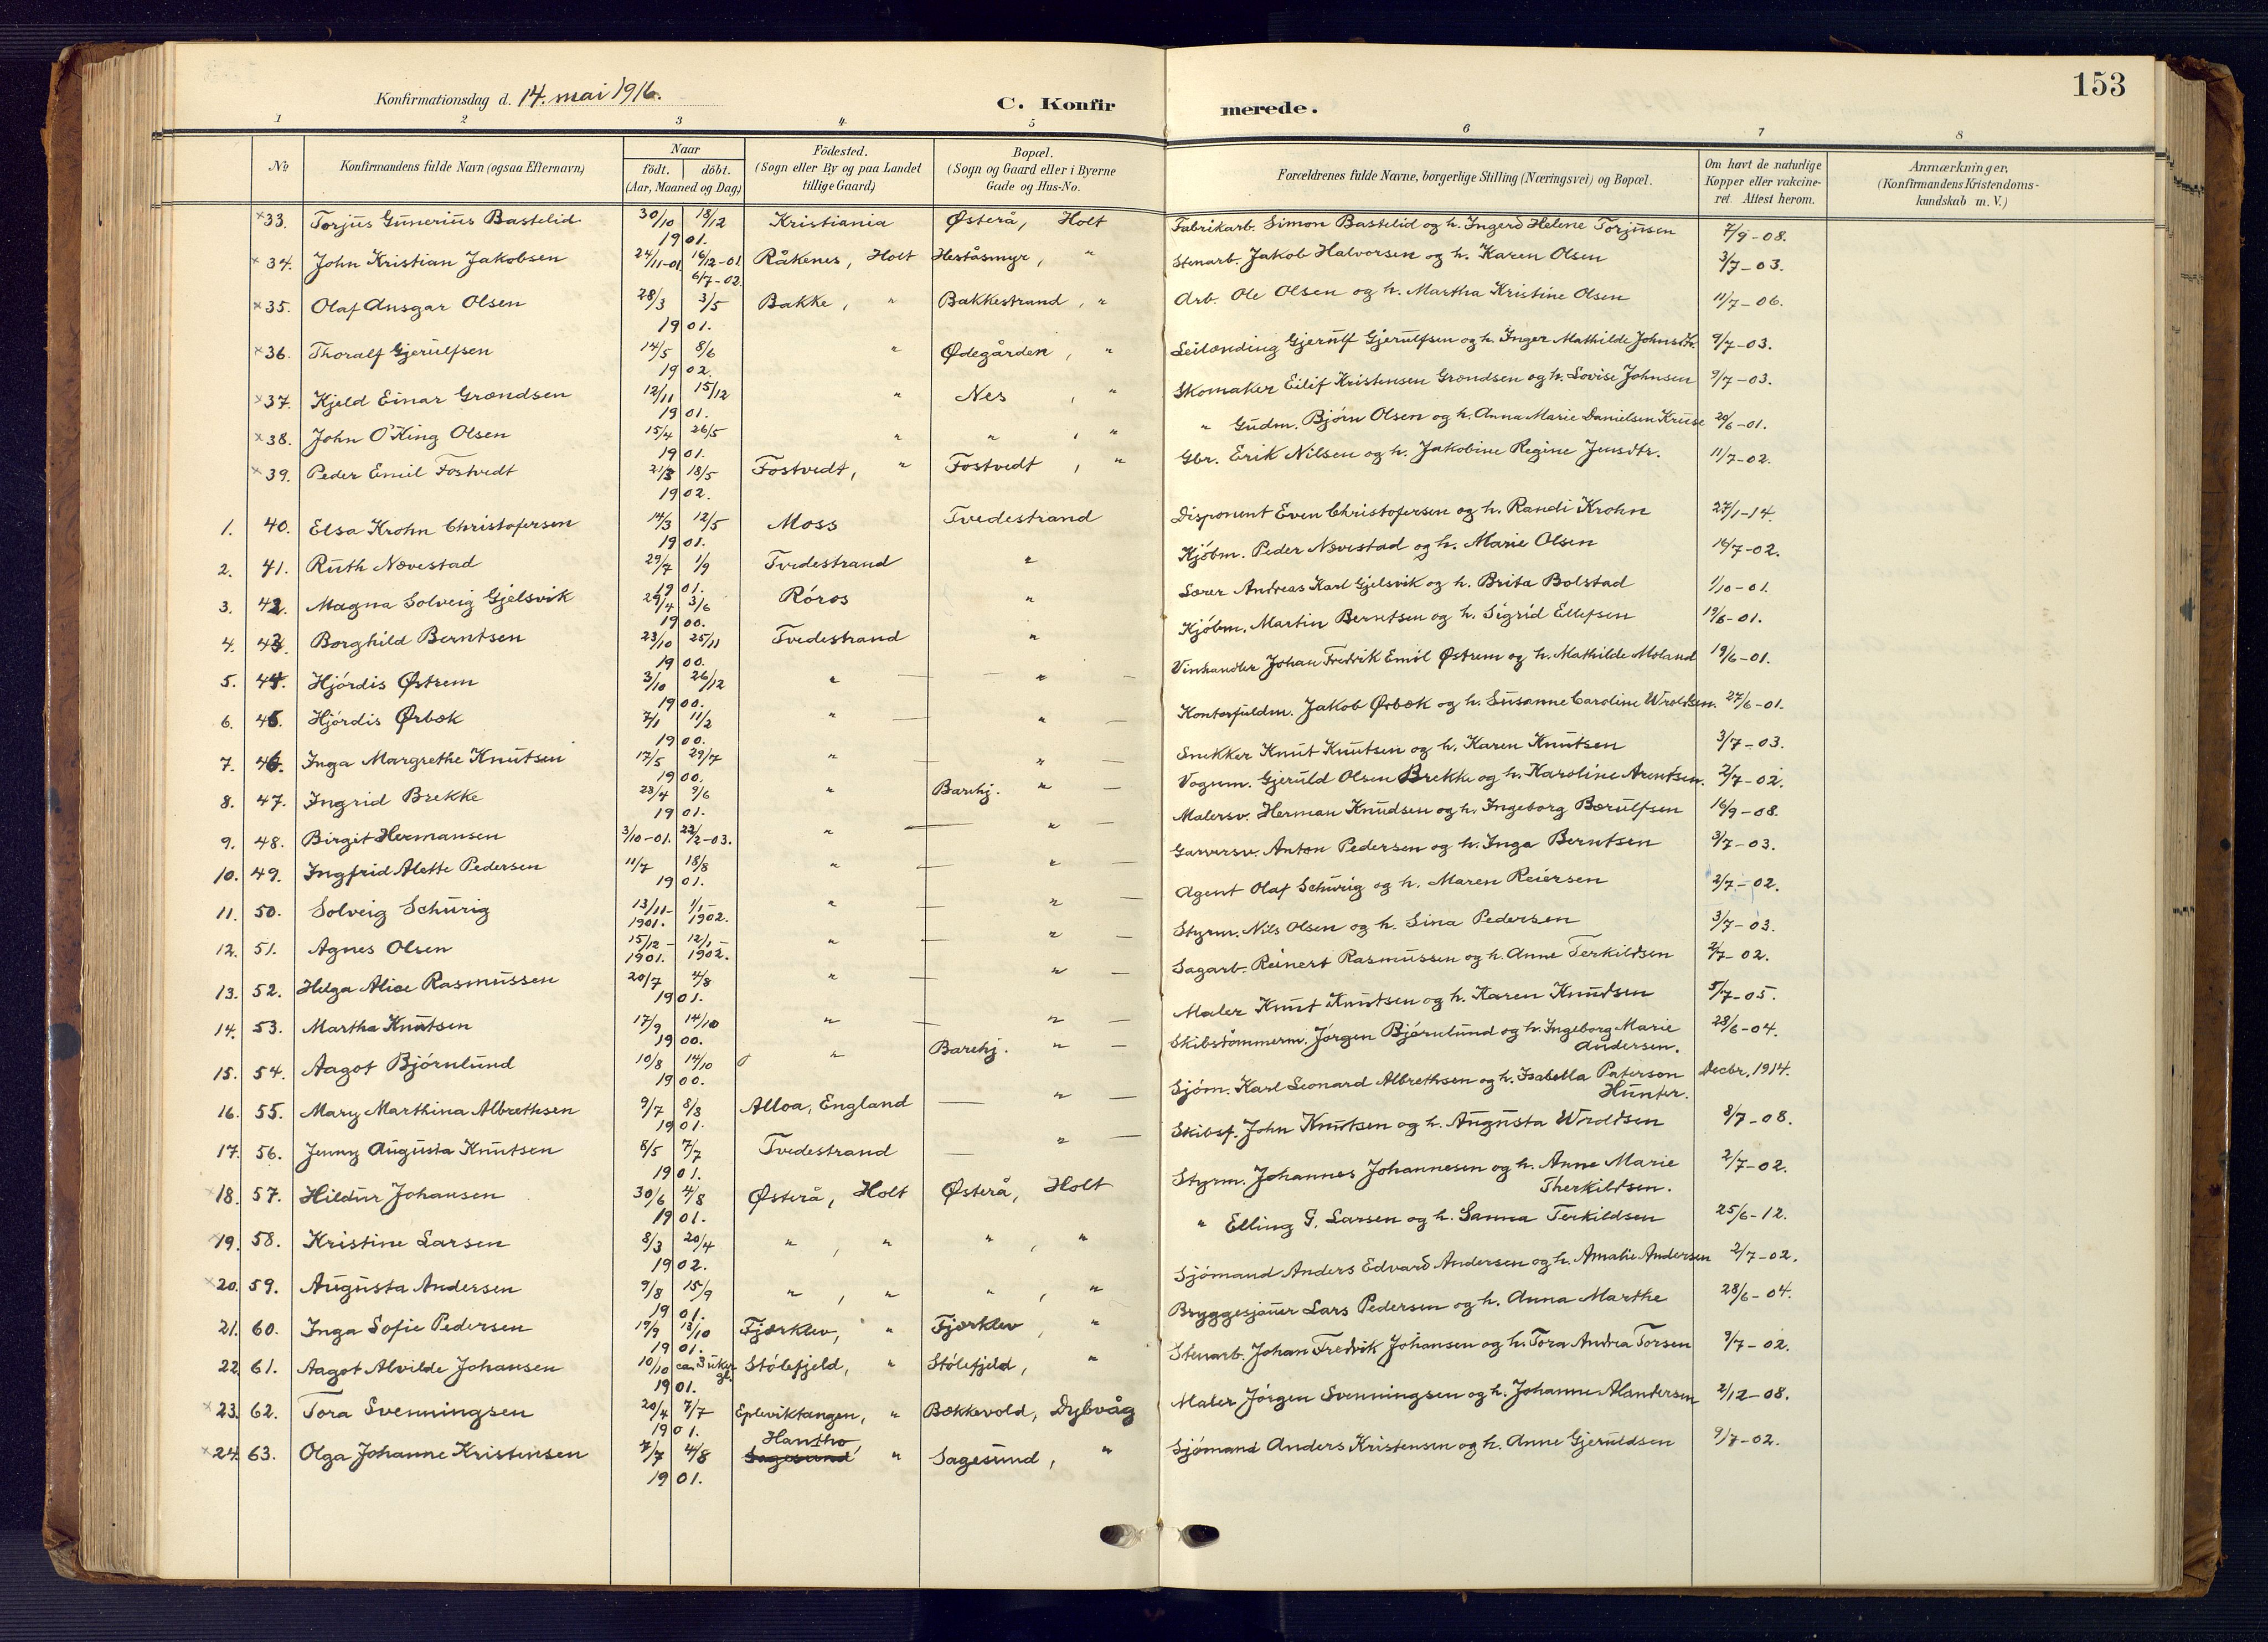 153
Konfirmationsdag d. 14. mai 1916.
C. Konfirmerede.
1 2 3 4 5 6 7 8
No Konfirmandens fulde Navn (ogsaa Efternavn) Naar födt. döbt. (Aar, Maaned og Dag) Födested. (Sogn eller By og paa Landet tillige Gaard) Bopæl. (Sogn og Gaard eller i Byerne Gade og Hus-No. Forældrenes fulde Navne, borgerlige Stilling (Næringsvei) og Bopæl. Om havt de naturlige Kopper eller vakcineret. Attest herom. Anmærkninger. (Konfirmandens Kristendomskundskab m. V.)
×33. Torjus Gunerius Bastelid 30/10 18/12 1901. Kristiania Østerå, Holt Fabrikarb. Simon Bastelid og h. Ingerd Helene Torjusen 7/9-08.
×34. John Kristian Jakobsen 24/11-01 16/12-01 6/7-02. Råkenes, Holt Heståsmyr, " Stenarb. Jakob Halvorsen og h. Karen Olsen 3/7-03.
×35. Olaf Ansgar Olsen 28/3 3/5 1901. Bakke, " Bakkestrand, " Arb. Ole Olsen og h. Martha Kristine Olsen 11/7-06.
×36. Thoralf Gjerulfsen 14/5 8/6 1902. " Ødegården, " Leilænding Gjerulf Gjerulfsen og h. Inger Mathilde Johnsdtr. 9/7-03.
×37. Kjeld Einar Grændsen 12/11 15/12 1901. " Nes, " Skomaker Eilif Kristensen Grændsen og h. Lovise Johnsen 9/7-03.
×38. John O'King Olsen 15/4 26/5 1901. " ", " " Gudm. Bjørn Olsen og h. Anna Marie Danielsen Kruse 20/6-01.
×39. Peder Emil Fostvedt 21/3 18/5 1902. Fostvedt, " Fostvedt, " Gbr. Erik Nilsen og h. Jakobine Regine Jensdtr. 11/7-02.
1. 40. Elsa Krohn Christofersen 14/3 12/5 1901. Moss Tvedestrand Disponent Even Christofersen og h. Randi Krohn 27/1-14.
2. 41. Ruth Nævestad 29/7 1/9 1901. Tvedestrand " Kjöbm. Peder Nævestad og h. Marie Olsen 16/7-02.
3. 42. Magna Solveig Gjelsvik 29/4 3/6 1900. Röros " Lærer Andreas Karl Gjelsvik og h. Brita Bolstad 1/10-01.
4. 43. Borghild Berntsen 23/10 25/11 1900. Tvedestrand " Kjöbm. Martin Berntsen og h. Sigrid Ellefsen 19/6-01.
5. 44. Hjördis Østrem 3/10 26/12 1900. " — — " — Vinhandler Johan Fredrik Emil Østrem og h. Mathilde Moland 19/6-01.
6. 45. Hjördis Ørbæk 7/1 11/2 1900. " — " — Kontorfuldm. Jakob Ørbæk og h. Susanne Caroline Wroldsen. 27/6-01.
7. 46. Inga Margrethe Knutsen 17/5 29/7 1900. " — " — Snekker Knut Knutsen og h. Karen Knutsen 3/7-03.
8. 47. Ingrid Brekke 28/4 9/6 1901. " Barehj. " — Vognm. Gjeruld Olsen Brekke og h. Karoline Arentsen. 2/7-02.
9. 48. Birgit Hermansen 3/10-01. 22/2-03. " — " — Malersv. Herman Knudsen og h. Ingeborg Børulfsen 16/9-08.
10. 49. Ingfrid Alette Pedersen 11/7 18/8 1901. " — " — Garversv. Anton Pedersen og h. Inga Berntsen 3/7-03.
11. 50. Solveig Schürig 13/11-1901. 1/1-1902. " — " — Agent Olaf Schürig og h. Maren Reiersen 2/7-02.
12. 51. Agnes Olsen 15/12-1901. 12/1-1902. " — " — Styrm. Nils Olsen og h. Sina Pedersen 3/7-03.
13. 52. Helga Alice Rasmussen 20/7 4/8 1901. " — " — Sagarb. Reinert Rasmussen og h. Anne Terkildsen 2/7-02.
14. 53. Martha Knutsen 17/9 14/10 1900. " — " — Maler Knut Knutsen og h. Karen Knudsen 5/7-05.
15. 54. Aagot Björnlund 10/8 14/10 1900. " Barehj. " — Skibstømmerm. Jörgen Björnlund og h. Ingeborg Marie Andersen. 28/6-04.
16. 55. Mary Marthina Albrethsen 9/7 8/8 1901. Alloa, England — " — Sjöm. Karl Leonard Albrethsen og h. Isabella Paterson Hunter. Decbr. 1914.
17. 56. Jenny Augusta Knutsen 8/5 7/7 1901. Tvedestrand — " — Skibsf. John Knutsen og h. Augusta Wroldsen 8/7-08.
18. 57. Hildur Johansen 30/6 4/8 1901. Østerå, Holt Østerå, Holt Styrm. Johannes Johannesen og h. Anne Marie Therkildsen. 2/7-02.
×19. 58. Kristine Larsen 8/3 20/4 1902. ", " ", " " Elling G. Larsen og h. Sanna Terkildsen 25/6-12.
×20. 59. Augusta Andersen 9/8 15/9 1901. ", " ", " Sjömand Anders Edvard Andersen og h. Amalie Andersen 2/7-02.
21. 60. Inga Sofie Pedersen 19/9 13/10 1901. Fjærklev, " Fjærklev, " Bryggesjauer Lars Pedersen og h. Anna Marthe 28/6-04.
22. 61. Aagot Alvilde Johansen 10/10 ca. 3 uker gl. 1901. Stölefjeld, " Stölefjeld, " Stenarb. Johan Fredrik Johansen og h. Tora Andrea Torsen 9/7-02.
×23. 62. Tora Svenningsen 20/4 7/7 1901. Epleviktangen, " Bækkevold, Dybvåg Maler Jörgen Svenningsen og h. Johanne Alandersen 2/12-08.
×24. 63. Olga Johanne Kristensen 7/7 4/8 1901. Hantho Sagesund " Sagesund, " Sjömand Anders Kristensen og h. Anne Gjeruldsen 9/7-02.